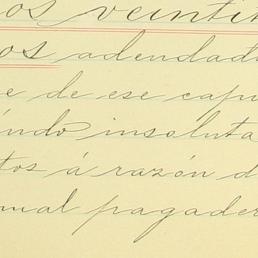 os veinti
os adendad
e de ese cap
ndo insoluta
tos á razón d
nual pagader